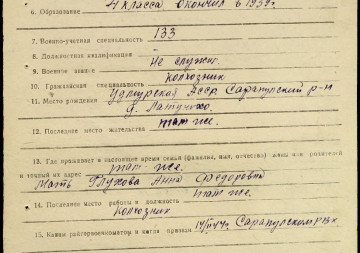 6. Образование 4 класса окончил в 1939 г.
7. Военно-учетная специальность 133
8. Должностная квалификация
9. Военное звание Не служил
10. Гражданская специальность Колхозник
11. Место рождения Удмурской Асср Сарапульский р-н
д.
12. Последнее место жительства там же.
13. Где проживает в настоящее время семья (фамилия, имя, отчество) жены или родителей
и точный их адрес там же.
Мать Глухова Анна Федоровна
14. Последнее место работы и должность там же.
Колхозник
15. Каким райгорвоенкоматом и когда призван Сарапульским рвк